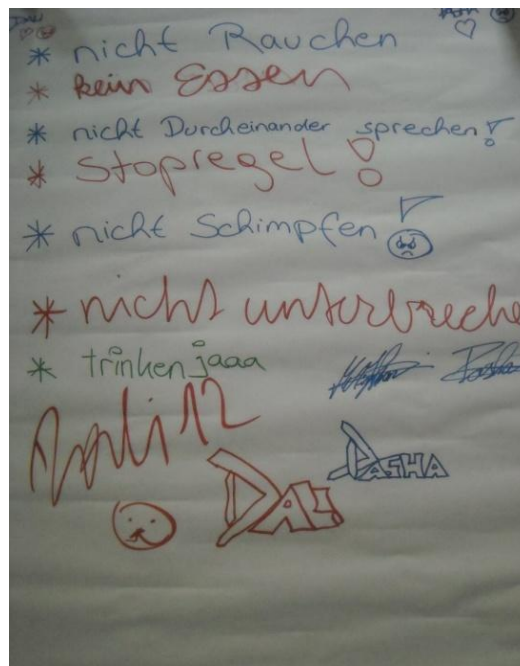 * nicht Rauchen
* kein Essen
* nicht Durcheinander sprechen!
* Stopregel!
* nicht Schimpfen!
* nicht unterbreche
* trinken jaaa
12
DASHA